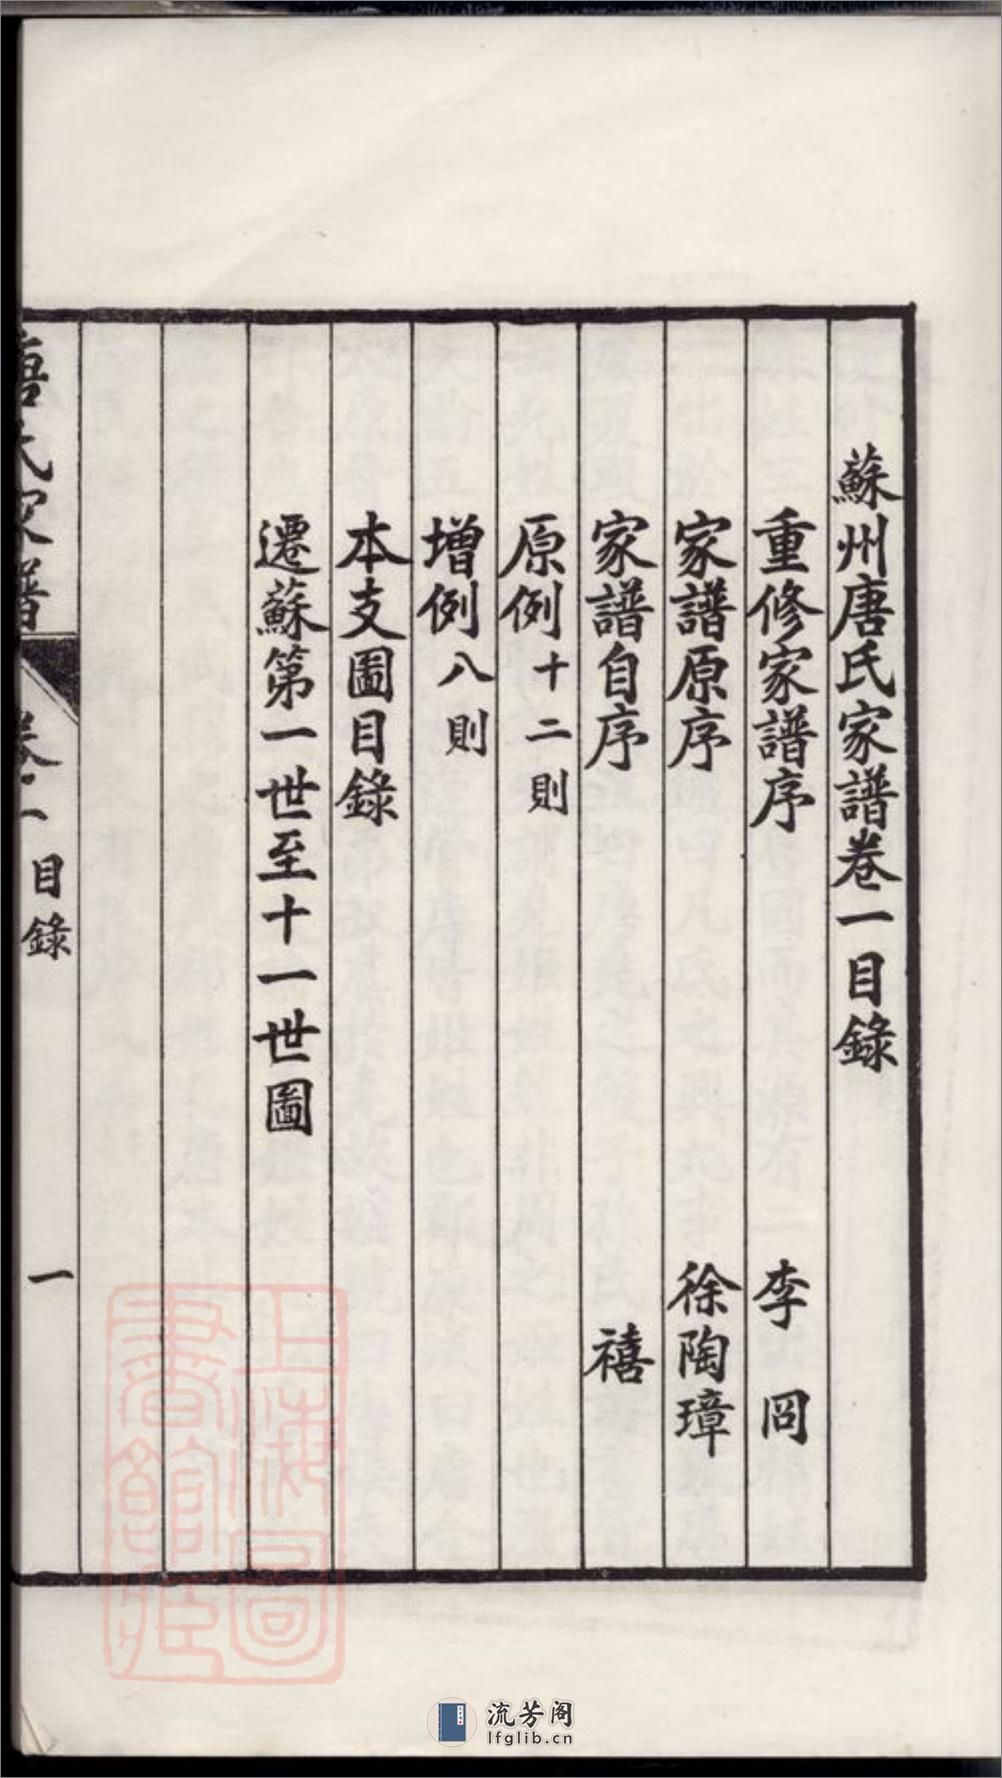 蘇州唐氏家譜卷一目錄
重修家譜序 李岡
家譜原序 徐陶璋
家譜自序 禧
原例十二則
增例八則
本支圖目錄
遷蘇第一世至十一世圖
唐氏家譜 卷一 目錄 一
上海圖書館藏
流芳阁
lfglib.cn